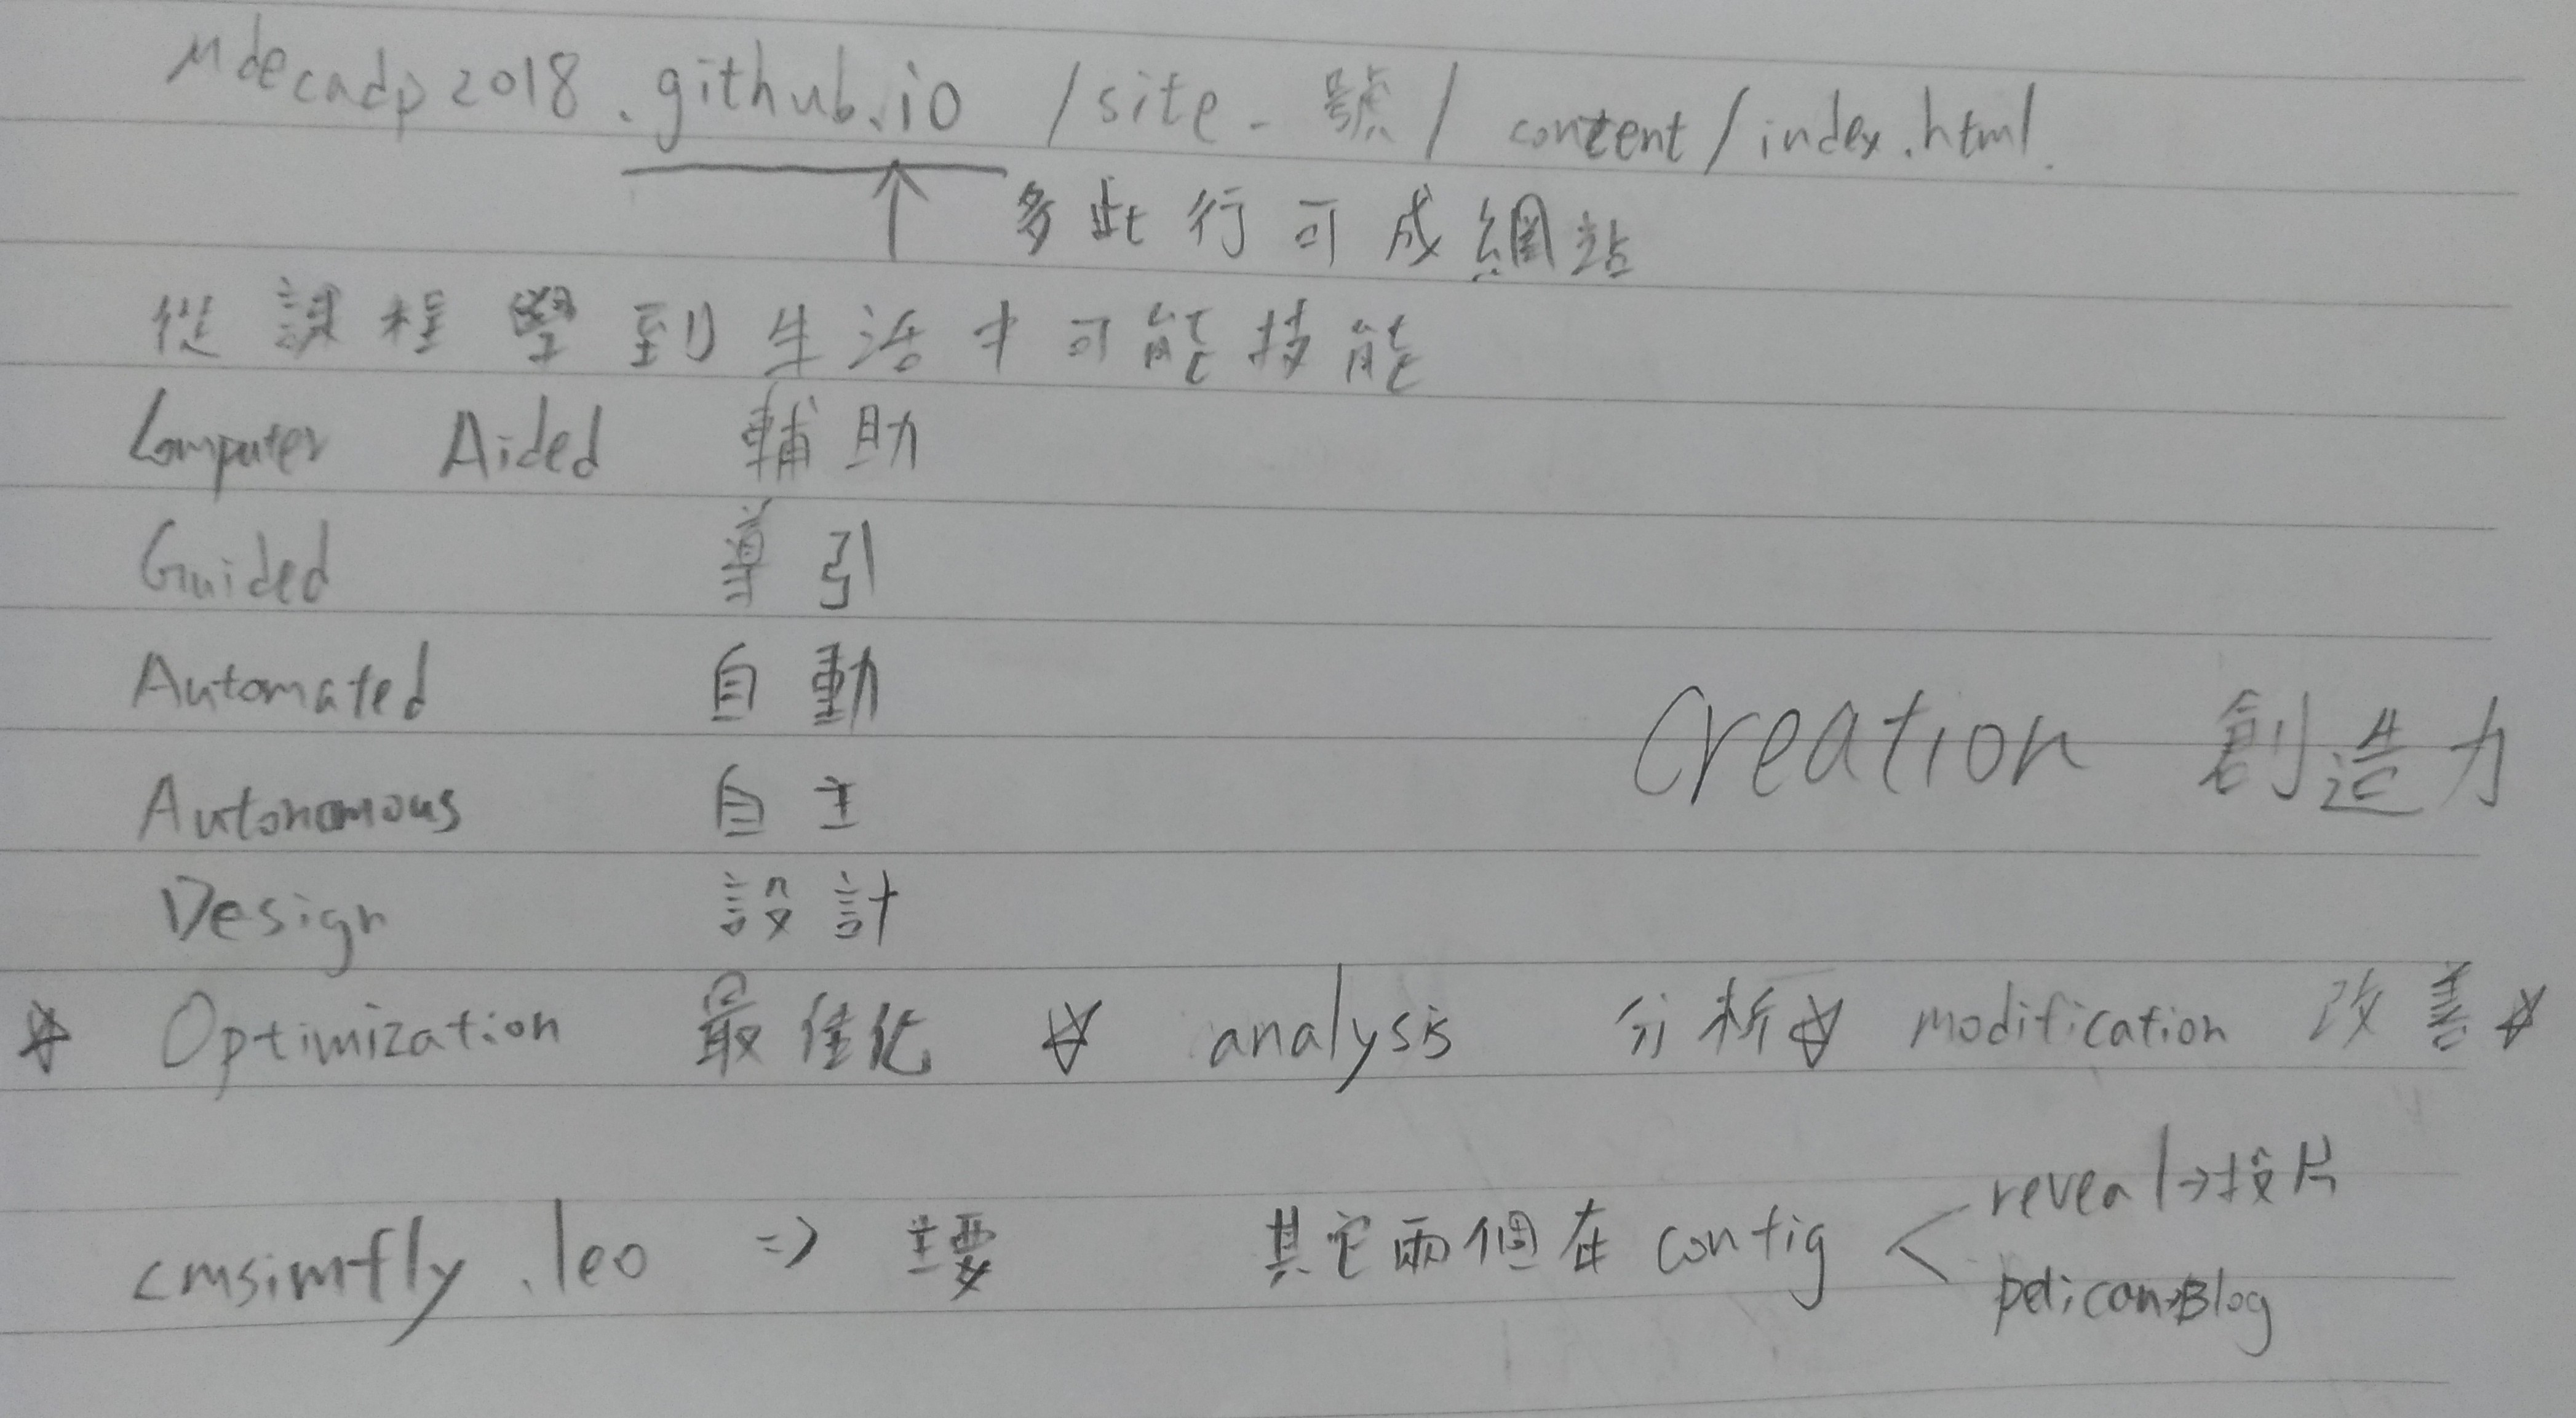 mdecadp2018.github.io /site-號/ content/index.html.
↑ 多此行可成網站
從課程學到生活才可能技能
Computer Aided 輔助
Guided 導引
Automated 自動
Creation 創造力
Autonomous 自主
Design 設計
☆ Optimization 最佳化 ☆ analysis 分析☆ modification 改善☆
reveal→投片
cmsimfly.leo => 主要 其它兩個在 config <
pelican→Blog